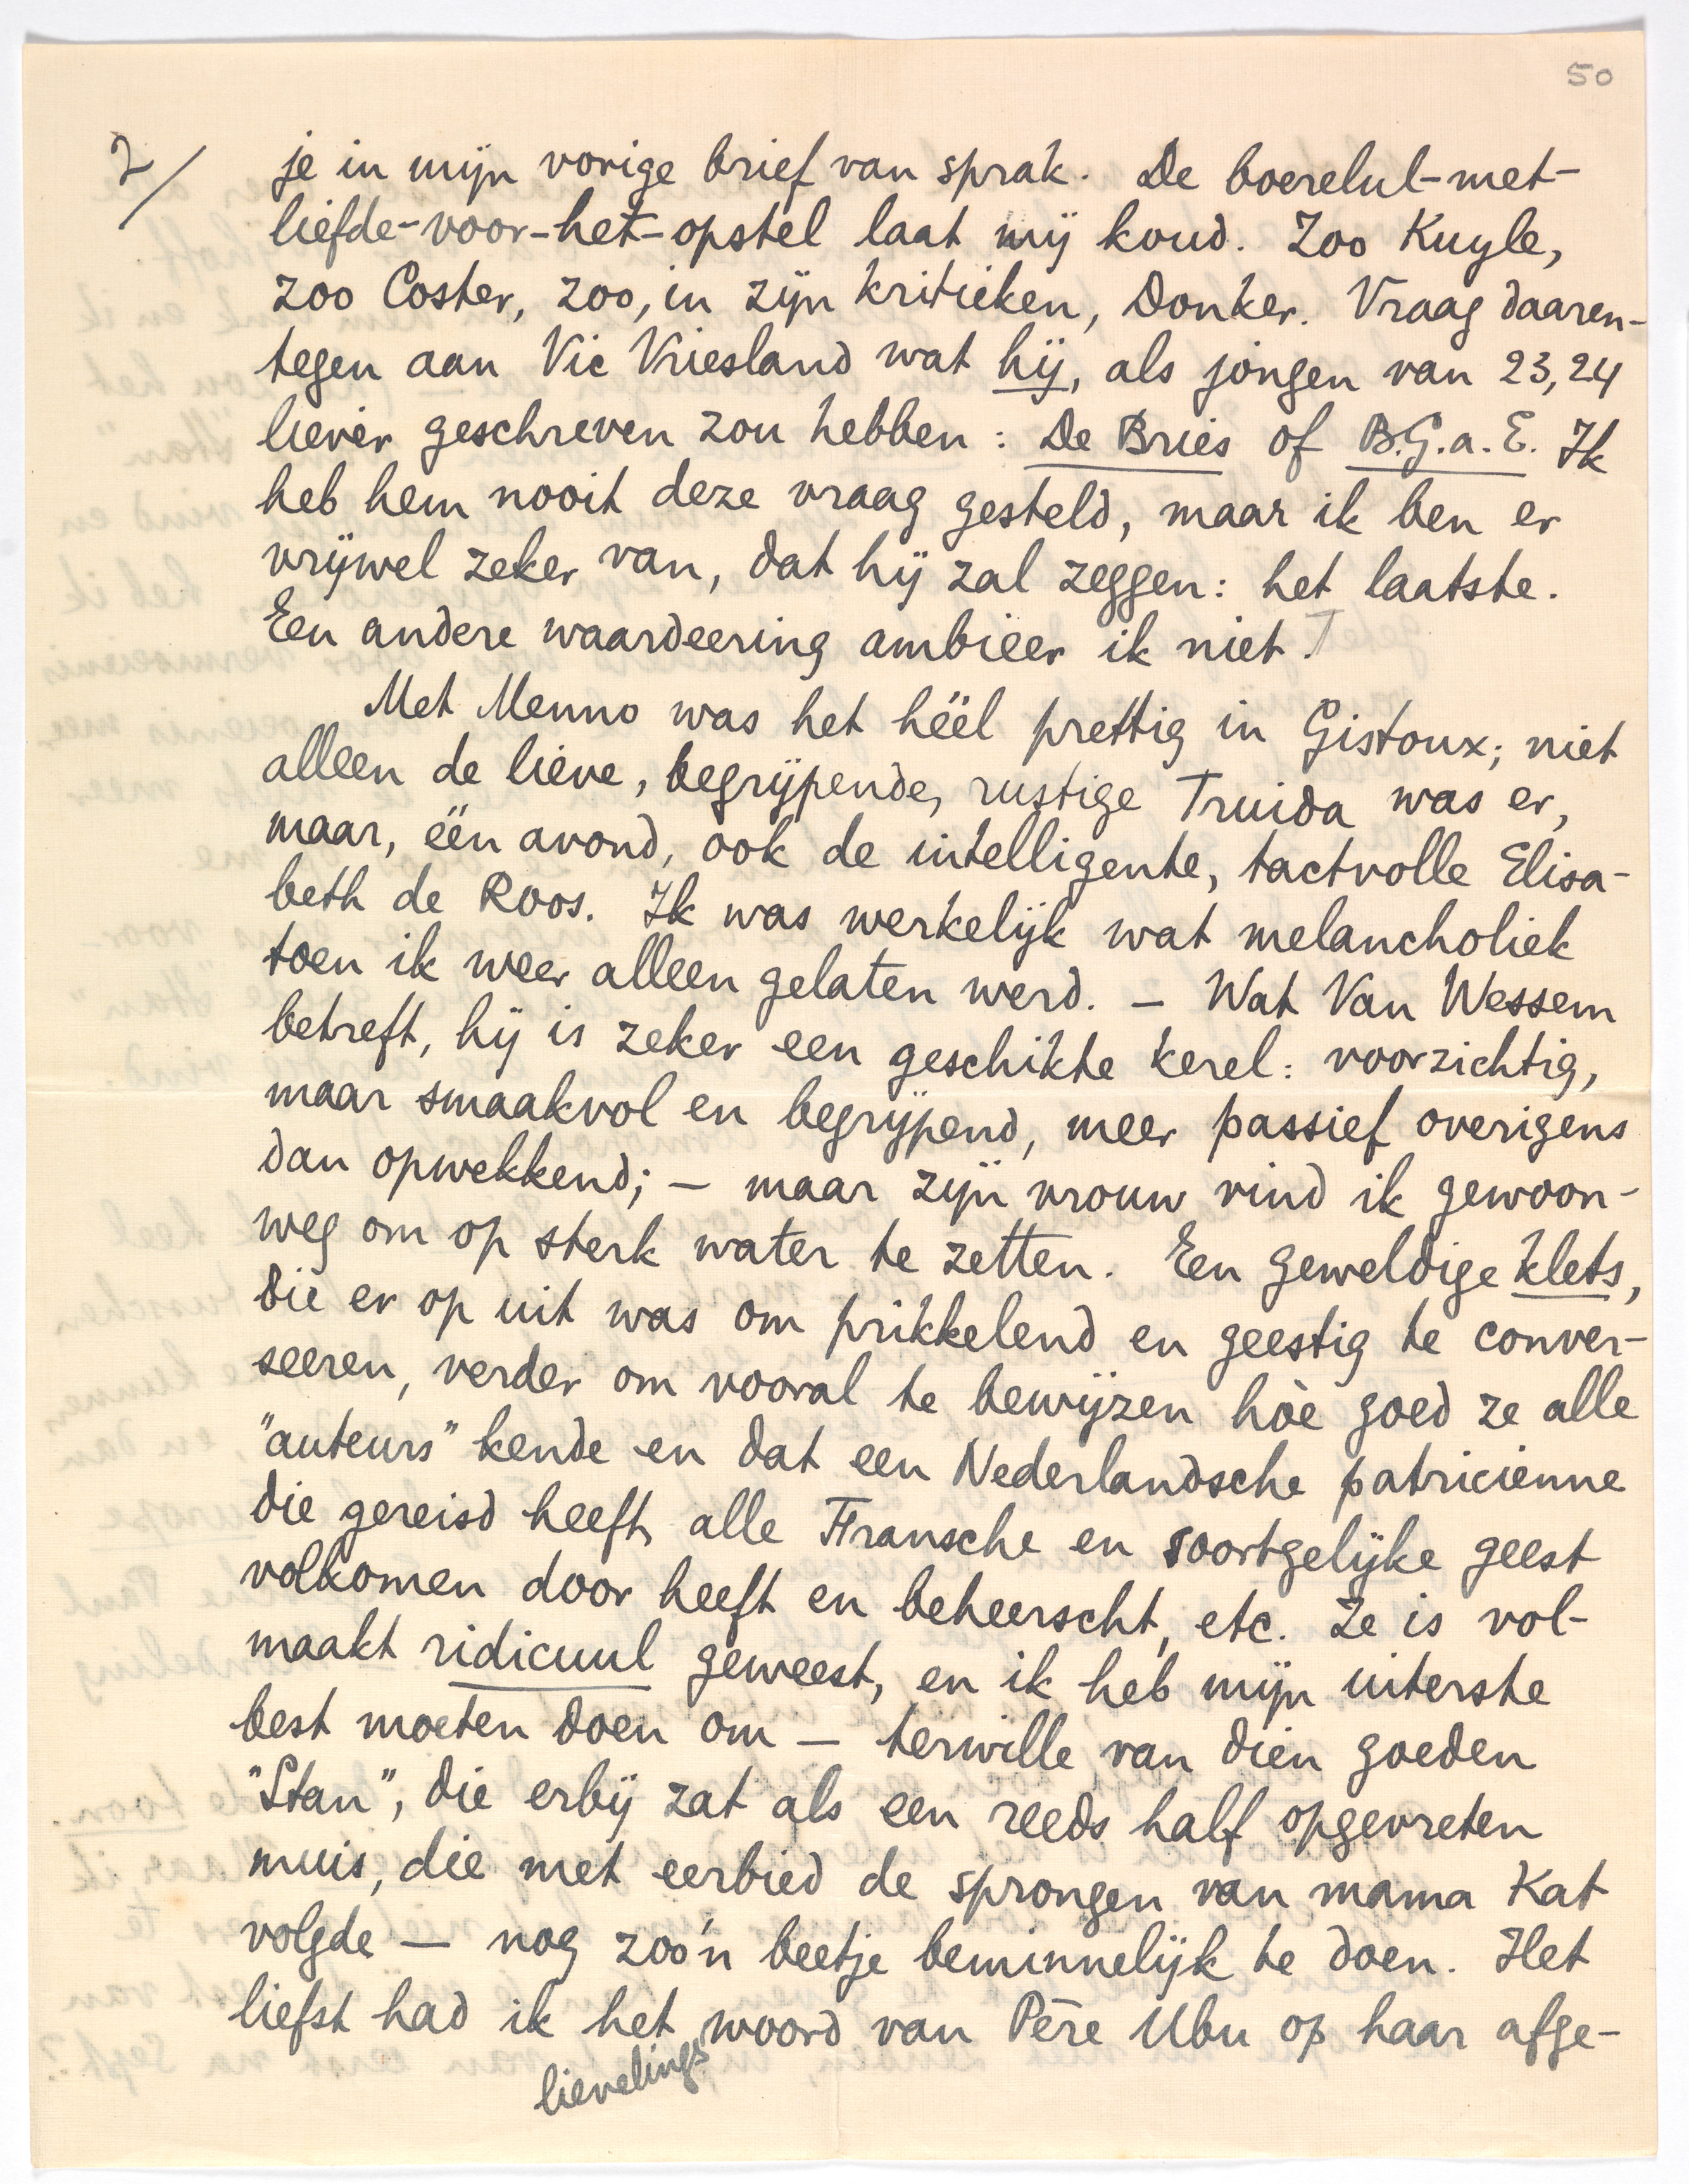 50
2/
je in mijn vorige brief van sprak. De boerelul-met-
liefde-voor-het-opstel laat mij koud. Zoo Kuyle,
zoo Coster, zoo, in zijn kritieken, Donker. Vraag daaren-
tegen aan Vic Vriesland wat hij, als jongen van 23, 24
liever geschreven zou hebben: De Bries of B.G.a.E. Ik
heb hem nooit deze vraag gesteld, maar ik ben er
vrijwel zeker van, dat hij zal zeggen: het laatste.
Een andere waardeering ambieer ik niet.
Met Menno was het héél prettig in Gistoux; niet
alleen de lieve, begrijpende, rustige Truida was er,
maar, één avond, ook de intelligente, tactvolle Elisa-
beth de Roos. Ik was werkelijk wat melancholiek
toen ik weer alleen gelaten werd. — Wat Van Wessem
betreft, hij is zeker een geschikte kerel: voorzichtig,
maar smaakvol en begrijpend, meer passief overigens
dan opwekkend; — maar zijn vrouw vind ik gewoon-
weg om op sterk water te zetten. Een geweldige klets,
die er op uit was om prikkelend en geestig te conver-
seeren, verder om vooral te bewijzen hòe goed ze alle
"auteurs" kende en dat een Nederlandsche patricienne
die gereisd heeft, alle Fransche en soortgelijke geest
volkomen door heeft en beheerscht, etc. Ze is vol-
maakt ridicuul geweest, en ik heb mijn uiterste
best moeten doen om — terwille van dien goeden
"Stan", die erbij zat als een reeds half opgevreten
muis, die met eerbied de sprongen van mama Kat
volgde — nog zoo'n beetje beminnelijk te doen. Het
liefst had ik het lievelingswoord van Père Ubu op haar afge-